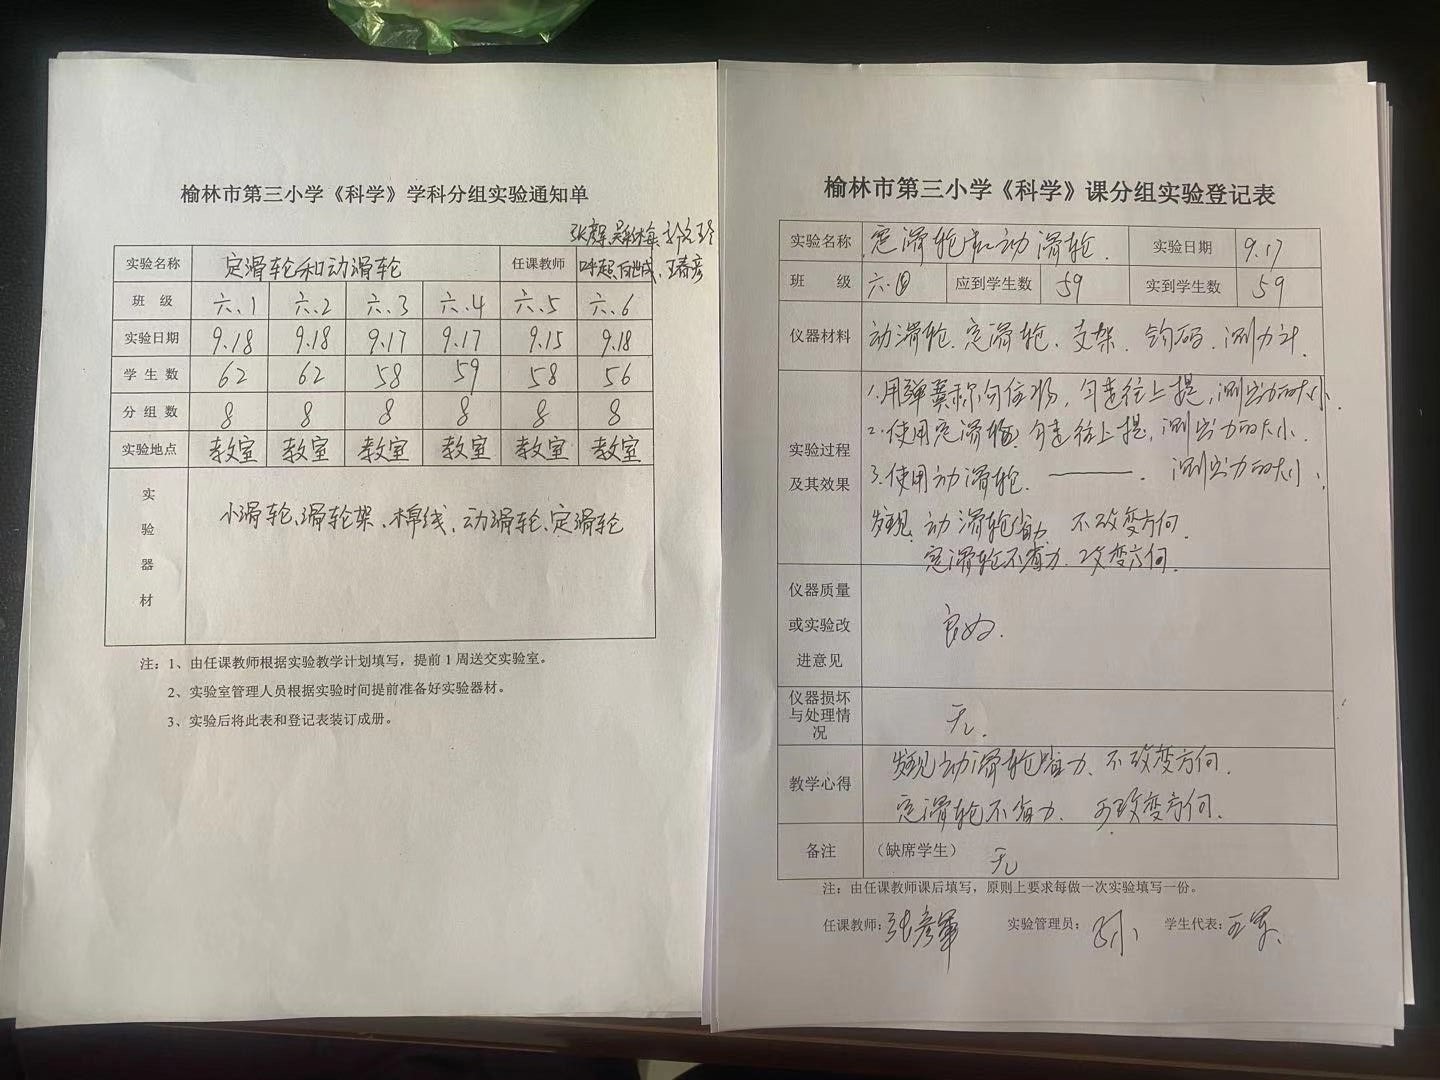 榆林市第三小学《科学》学科分组实验通知单
实验名称 定滑轮和动滑轮 任课教师 王春彦
班 级 六.1 六.2 六.3 六.4 六.5 六.6
实验日期 9.18 9.18 9.17 9.17 9.15 9.18
学 生 数 62 62 58 59 58 56
分 组 数 8 8 8 8 8 8
实验地点 教室 教室 教室 教室 教室 教室
实验器材 小滑轮、滑轮架、棉线、动滑轮、定滑轮
注：1、由任课教师根据实验教学计划填写，提前1周送交实验室。
2、实验室管理人员根据实验时间提前准备好实验器材。
3、实验后将此表和登记表装订成册。
榆林市第三小学《科学》课分组实验登记表
实验名称 定滑轮和动滑轮 实验日期 9.17
班 级 六.四 应到学生数 59 实到学生数 59
仪器材料 动滑轮、定滑轮、支架、钩码、测力计
实验过程及其效果
1.用弹簧称勾住物，匀速往上提，测出力的大小.
2.使用定滑轮 匀速往上提，测出力的大小.
3.使用动滑轮. ———. 测出力的大小.
发现 动滑轮省力 不改变方向.
定滑轮不省力. 改变方向.
仪器质量或实验改进意见 良好.
仪器损坏与处理情况 无.
教学心得 发现动滑轮省力、不改变方向.
定滑轮不省力. 可改变方向.
备注 （缺席学生） 无
注：由任课教师课后填写，原则上要求每做一次实验填写一份。
任课教师：张彦军 实验管理员： 学生代表：